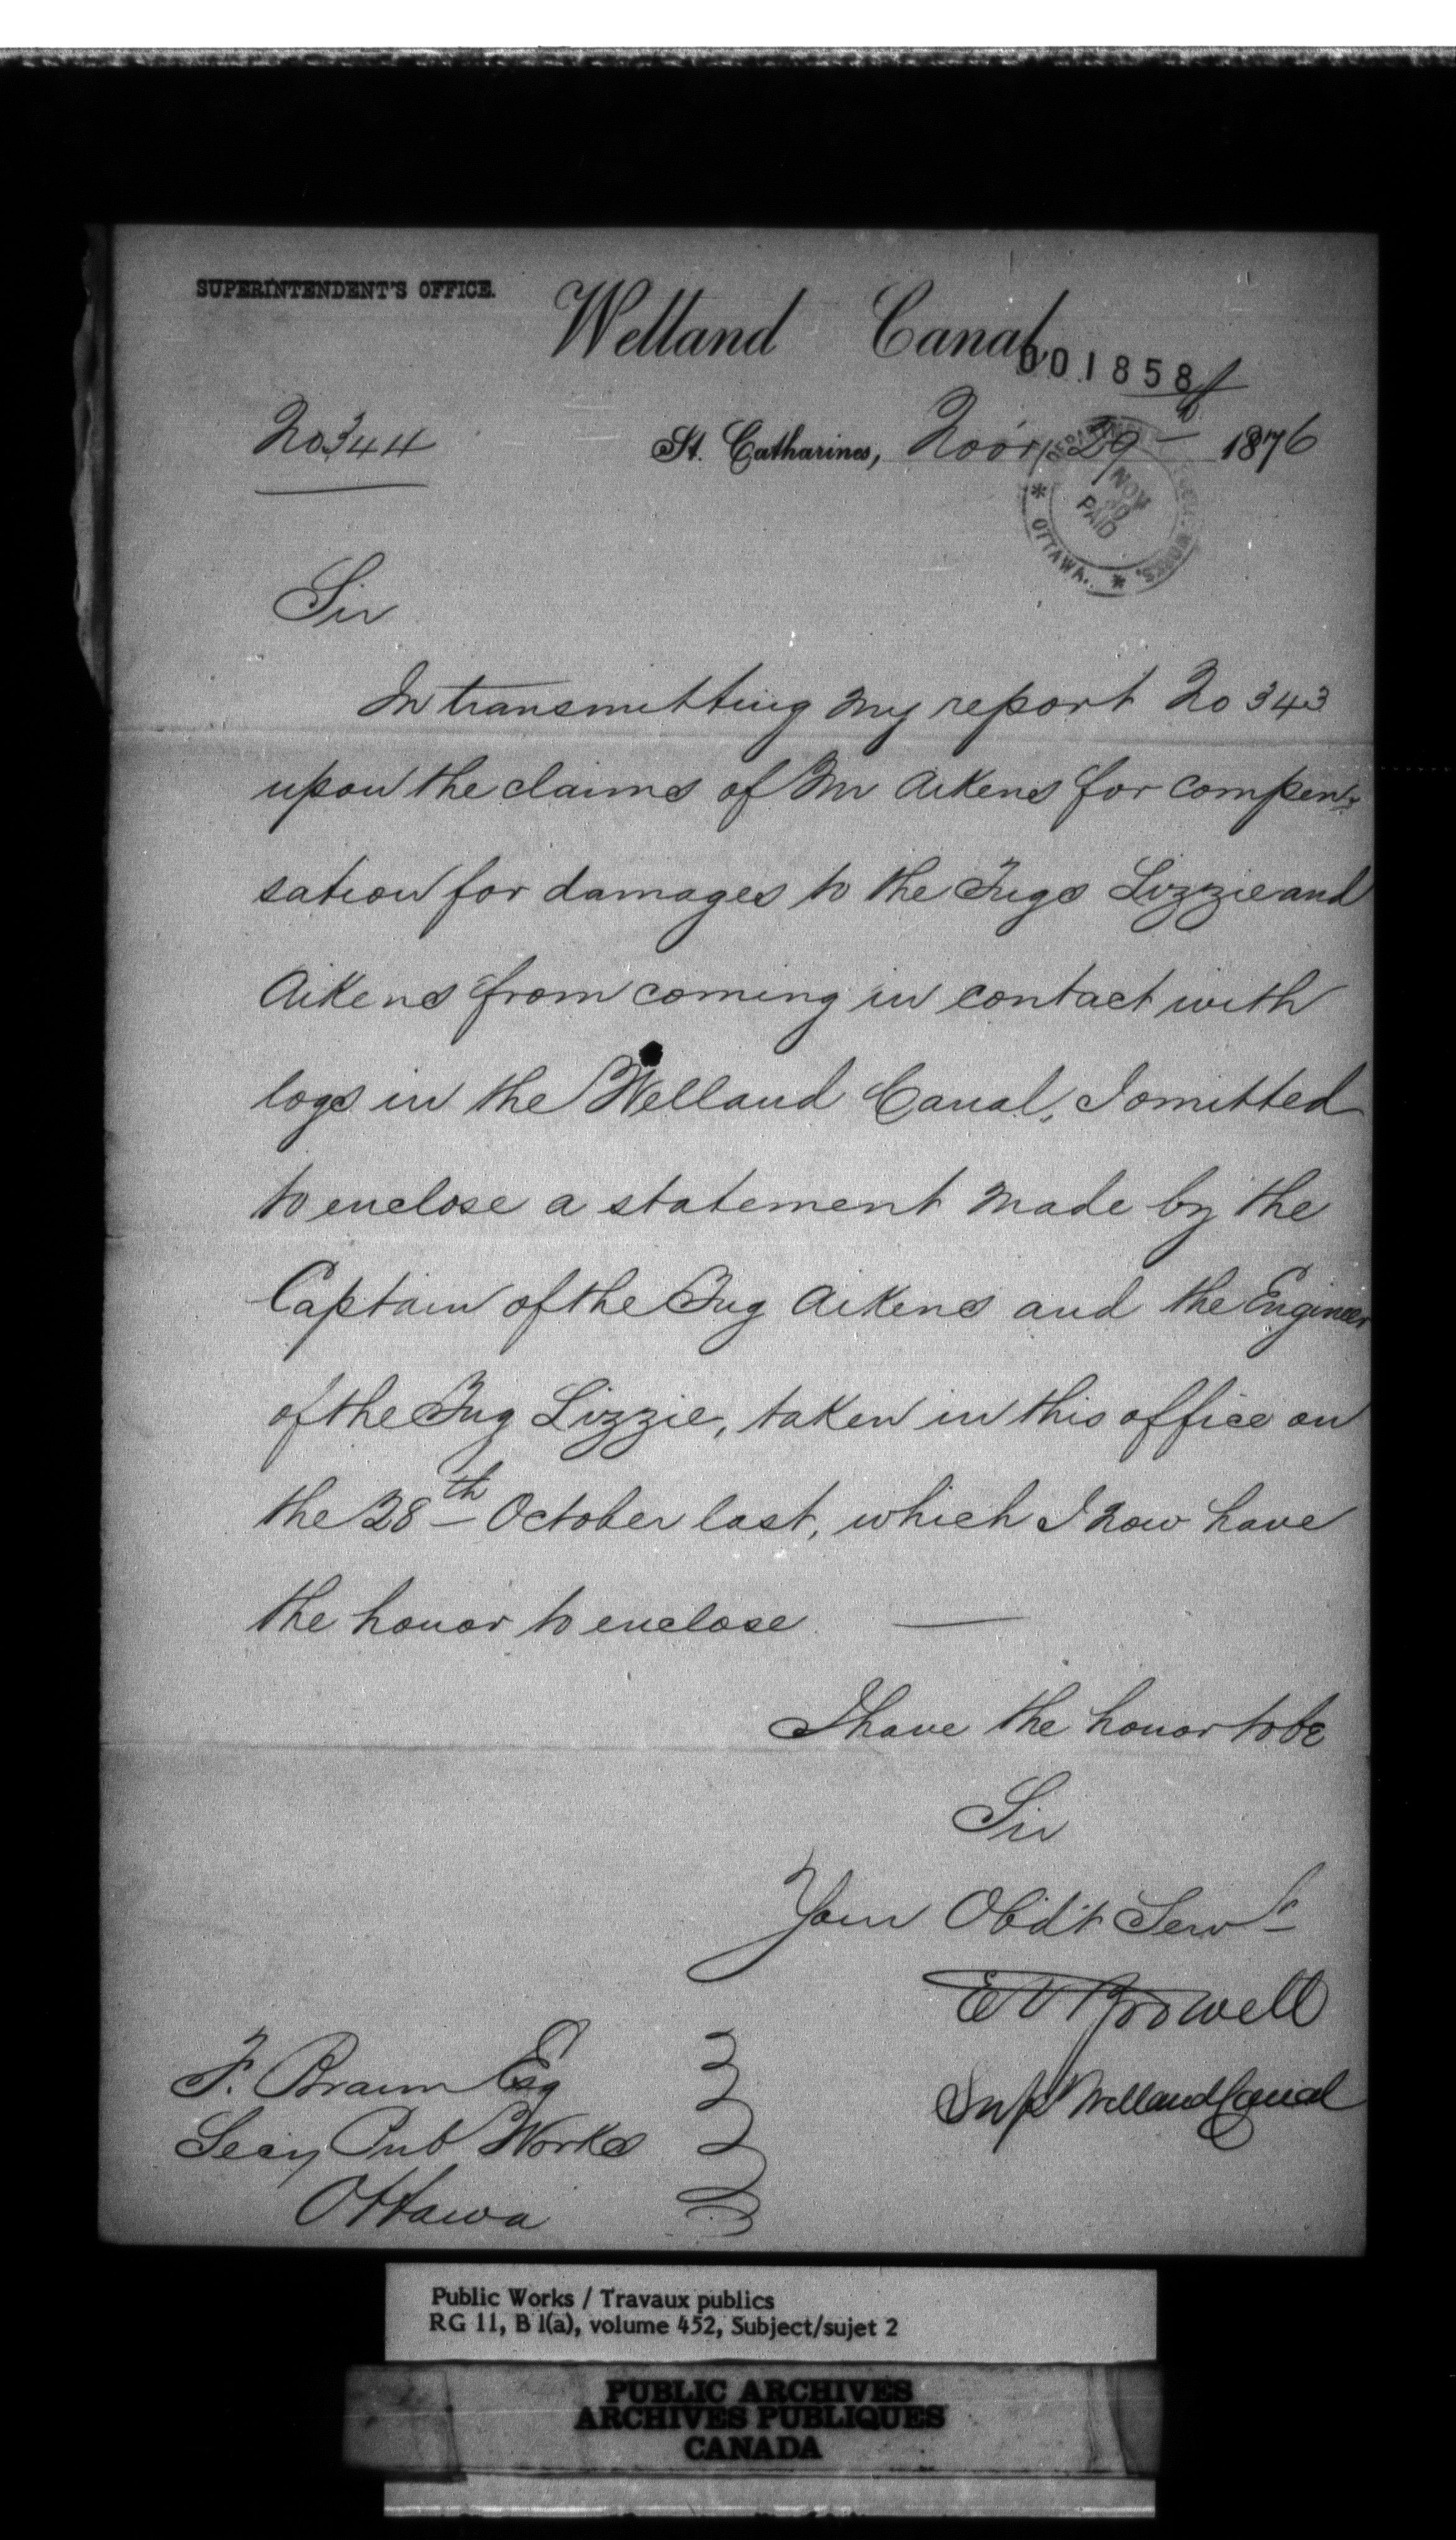 SUPERINTENDENT'S OFFICE.
Welland Canal,
001858
No 344
St. Catharines, Nov'r 29th 1876
DEPARTMENT PUBLIC WORKS.
* OTTAWA. *
NOV
30
PAID
Sir
In transmitting my report No 343
upon the claims of Mr Aikens for compen-
sation for damages to the Tugs Lizzie and
Aikens from coming in contact with
logs in the Welland Canal, I omitted
to enclose a statement made by the
Captain of the Tug Aikens and the Engineer
of the Tug Lizzie, taken in this office on
the 28th October last, which I now have
the honor to enclose
I have the honor to be
Sir
Your Obd't Servt
E V Bodwell
Supt Welland Canal
F. Braun Esq
Secy Pub Works
Ottawa
Public Works / Travaux publics
RG 11, B 1(a), volume 452, Subject/sujet 2
PUBLIC ARCHIVES
ARCHIVES PUBLIQUES
CANADA